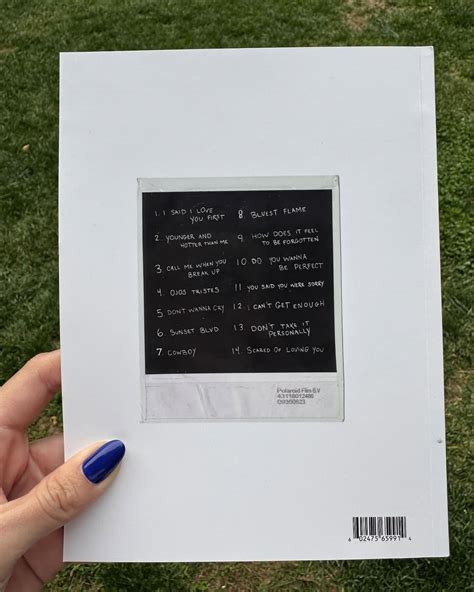 1. I SAID I LOVE
YOU FIRST
2. YOUNGER AND
HOTTER THAN ME
3. CALL ME WHEN YOU
BREAK UP
4. OJOS TRISTES
5. DON'T WANNA CRY
6. SUNSET BLVD
7. COWBOY
8. BLUEST FLAME
9. HOW DOES IT FEEL
TO BE FORGOTTEN
10 DO YOU WANNA
BE PERFECT
11. YOU SAID YOU WERE SORRY
12. I CAN'T GET ENOUGH
13. DON'T TAKE IT
PERSONALLY
14. SCARED OF LOVING YOU
Polaroid Film
6 02475 65991 4